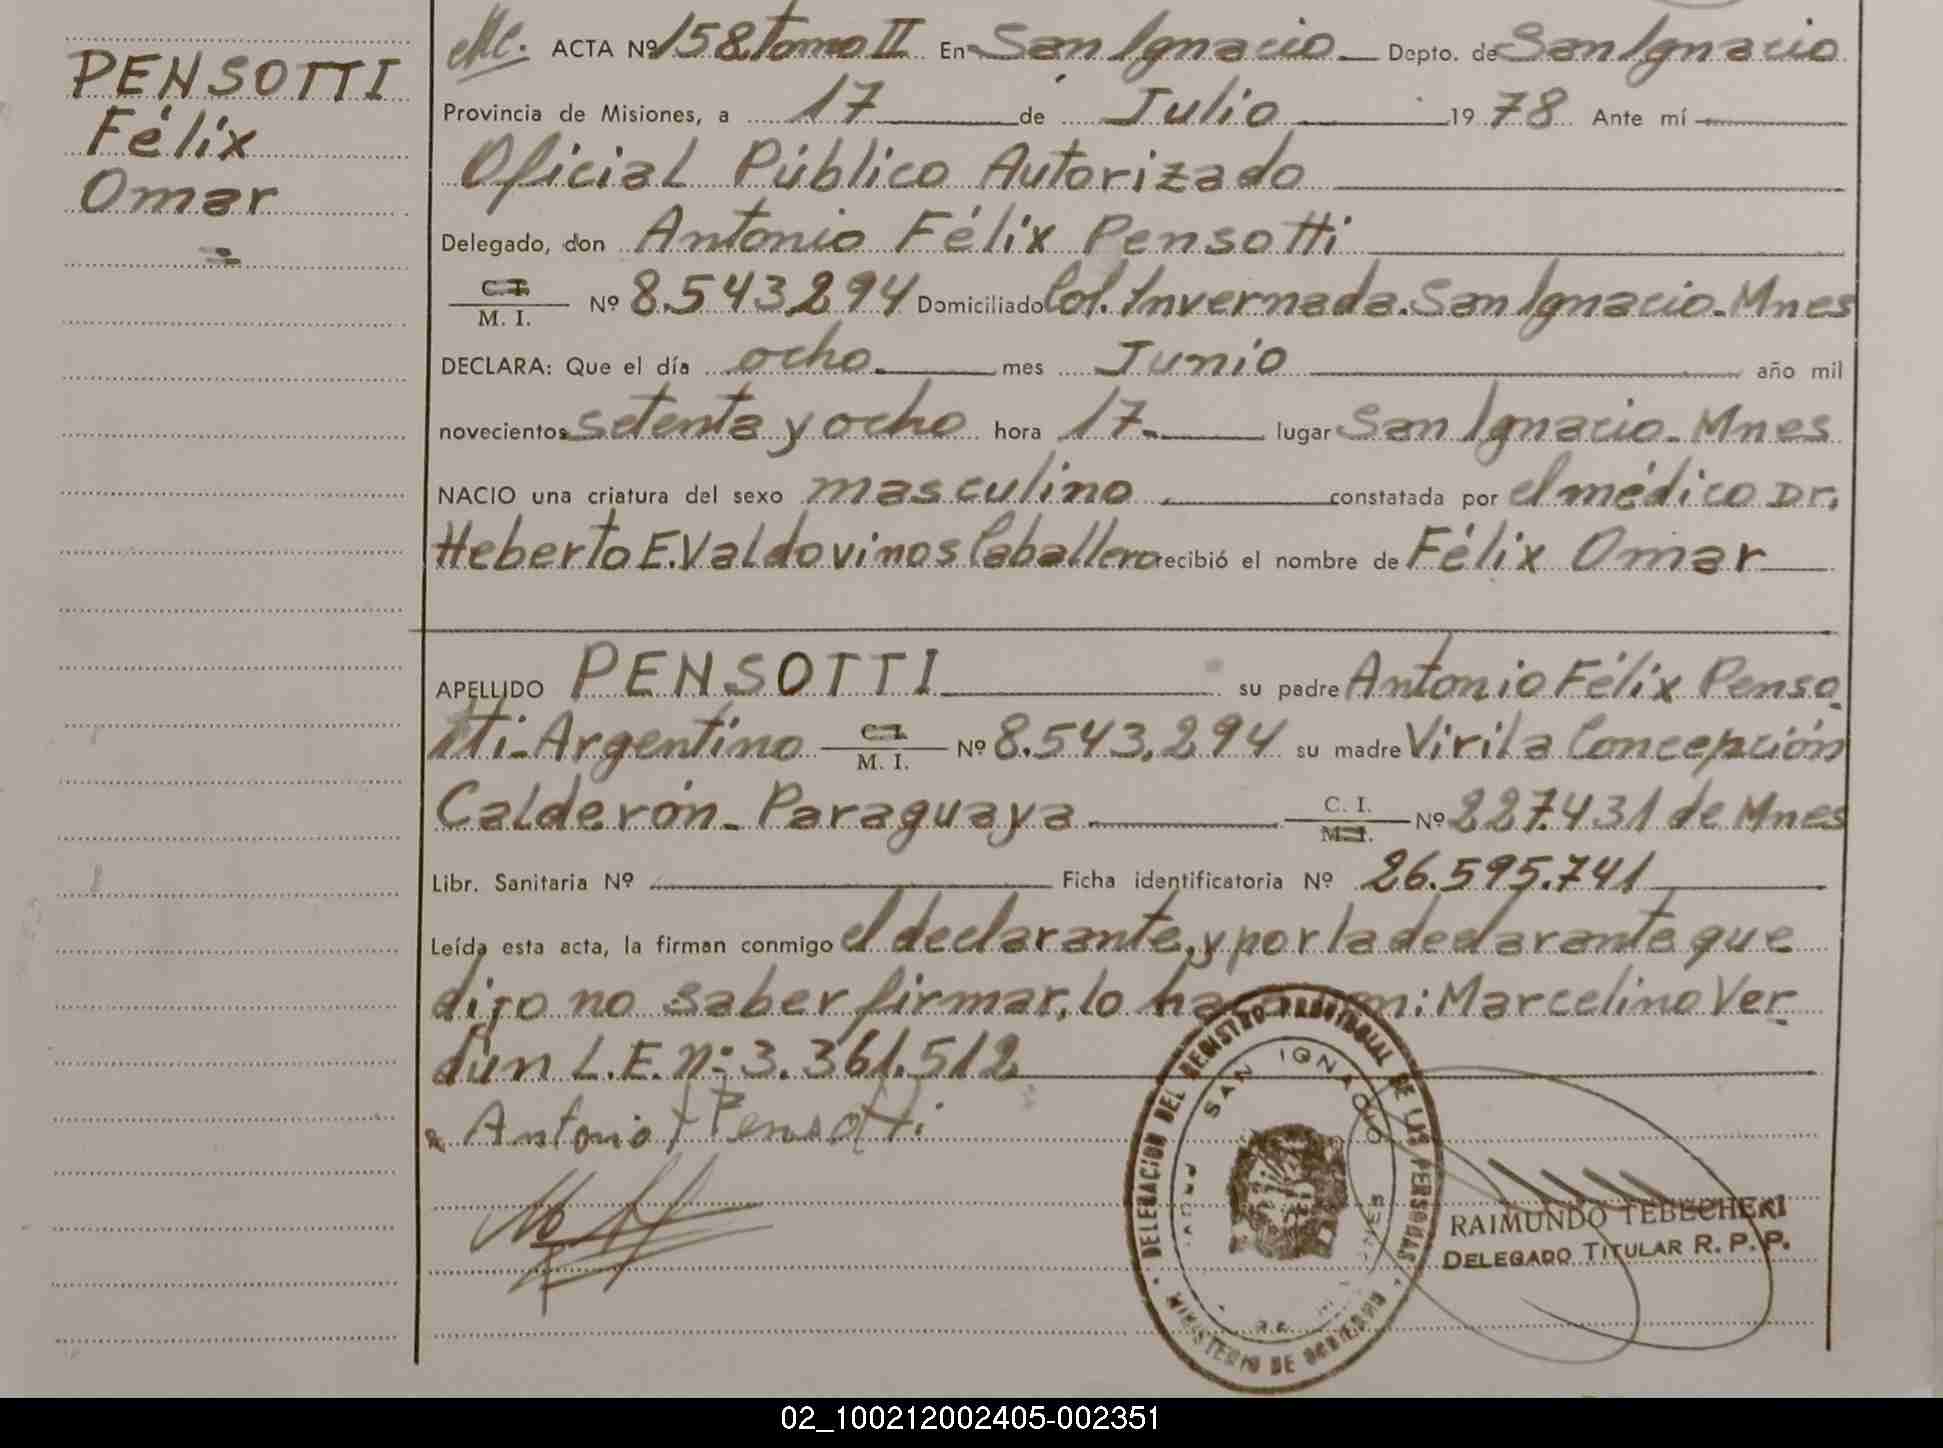 PENSOTTI
Félix
Omar
ACTA Nº 158 tomo II En San Ignacio Depto. de San Ignacio
Provincia de Misiones, a 17 de Julio 1978 Ante mí
Oficial Público Autorizado
Delegado, don Antonio Félix Pensotti
C. I.
M. I. Nº 8.543.294 Domiciliado Col. Invernada. San Ignacio. Mnes
DECLARA: Que el día ocho mes Junio año mil
novecientos setenta y ocho hora 17 lugar San Ignacio. Mnes
NACIO una criatura del sexo masculino constatada por el médico Dr.
Heberto E. Valdovinos Caballero recibió el nombre de Félix Omar
APELLIDO PENSOTTI su padre Antonio Félix Penso
tti-Argentino C. I. M. I. Nº 8.543.294 su madre Virila Concepción
Calderón_ Paraguaya C. I. M. I. Nº 227.431 de Mnes
Libr. Sanitaria Nº Ficha identificatoria Nº 26.595.741
Leída esta acta, la firman conmigo el declarante, y por la declarante que
dijo no saber firmar, lo Marcelino Ver
dún L.E. nº 3.361.512
Antonio F Pensotti
DELEGACION DEL REGISTRO PROVINCIAL DE LAS PERSONAS
SAN IGNACIO
MINISTERIO DE GOBIERNO
RAIMUNDO TEBECHERI
DELEGADO TITULAR R. P. P.
02_100212002405-002351